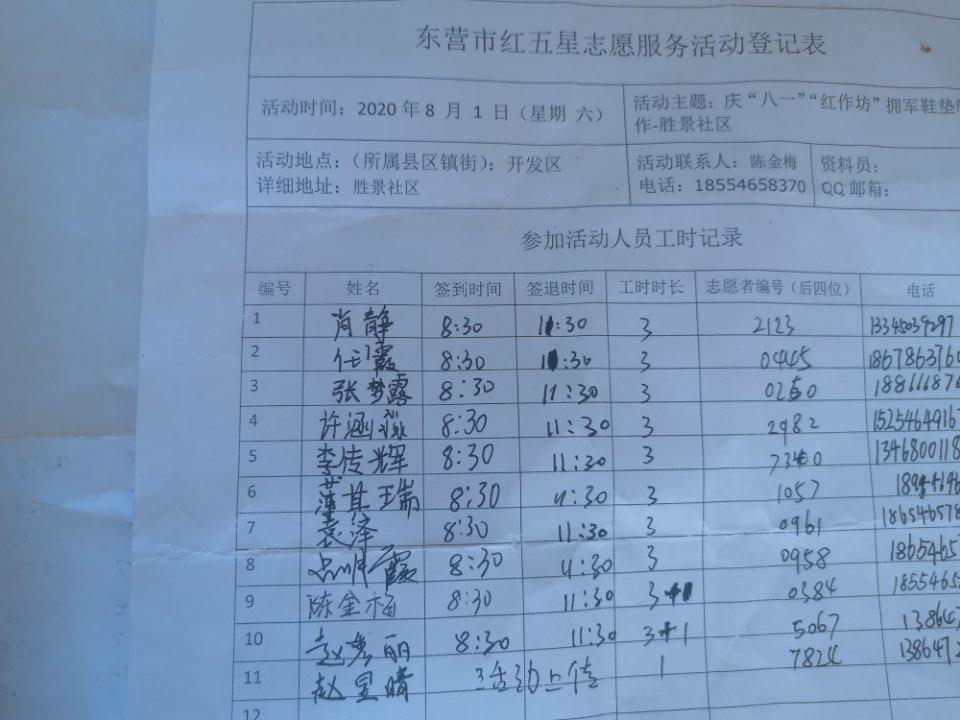 东营市红五星志愿服务活动登记表
活动时间：2020年8月1日（星期 六） 活动主题：庆“八一”“红作坊”拥军鞋垫
作-胜景社区
活动地点：（所属县区镇街）：开发区 活动联系人：陈金梅 资料员：
详细地址：胜景社区 电话：18554658370 QQ邮箱：
参加活动人员工时记录
编号 姓名 签到时间 签退时间 工时时长 志愿者编号（后四位） 电话
1 肖静 8:30 11:30 3 2123 13345039297
2 任霞 8:30 11:30 3 0445 1867863760
3 张梦露 8:30 11:30 3 0260 188111876
4 许涵 8:30 11:30 3 2982 1525464916
5 李传辉 8:30 11:30 3 7340 1346800118
6 其瑞 8:30 11:30 3 1057
7 袁泽 8:30 11:30 3 0961 186546578
8 霞 8:30 11:30 3 0958 1865465
9 陈金梅 8:30 11:30 3+1 0384 1855465
10 赵秀丽 8:30 11:30 3+1 5067 138647
11 赵星晴 活动上传 1 7824 1386472
12